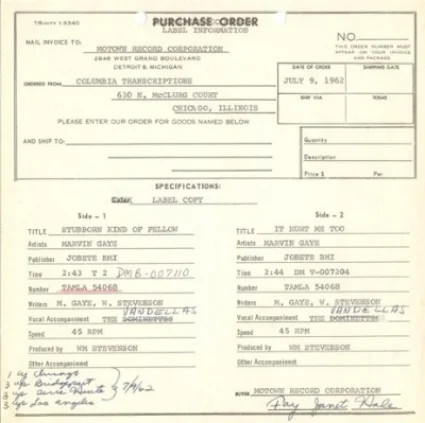 TRinity 1-3340
PURCHASE ORDER
LABEL INFORMATION
NO.
MAIL INVOICE TO:
THIS ORDER NUMBER MUST
APPEAR ON YOUR INVOICE
AND PACKAGE
MOTOWN RECORD CORPORATION
2648 WEST GRAND BOULEVARD
DETROIT 8, MICHIGAN
DATE OF ORDER
SHIPPING DATE
ORDERED FROM COLUMBIA TRANSCRIPTIONS
JULY 9, 1962
630 N. McCLURG COURT
SHIP VIA
TERMS
CHICAGO, ILLINOIS
PLEASE ENTER OUR ORDER FOR GOODS NAMED BELOW
AND SHIP TO:
Quantity
Description
Price $ Per
SPECIFICATIONS:
LABEL COPY
Side - 1
TITLE STUBBORN KIND OF FELLOW
Artists MARVIN GAYE
Publisher JOBETE BMI
Time 2:43 T 2 DMB-007110
Number TAMLA 54068
Writers M. GAYE, W. STEVENSON
VANDELLAS
Vocal Accompaniment THE
Speed 45 RPM
Produced by WM STEVENSON
Other Accompaniment
Side - 2
TITLE IT HURT ME TOO
Artists MARVIN GAYE
Publisher JOBETE BMI
Time 2:44 DM V-007204
Number TAMLA 54068
Writers M. GAYE, W. STEVENSON
VANDELLAS
Vocal Accompaniment THE
Speed 45 RPM
Produced by WM STEVENSON
Other Accompaniment
1 Chicago
3 Bridgeport
2 Terre Haute
3 Los Angeles
7/9/62
BUYER MOTOWN RECORD CORPORATION
Janet Hale